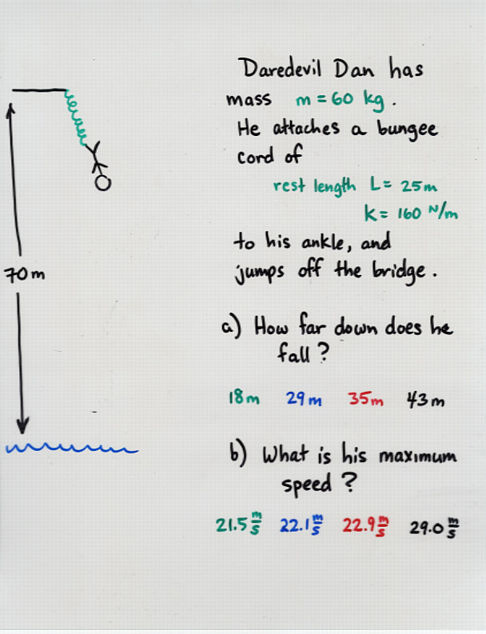 Daredevil Dan has
mass m = 60 kg.
He attaches a bungee
cord of
rest length L = 25m
k = 160 N/m
to his ankle, and
jumps off the bridge.
70m
a) How far down does he
fall?
18m 29m 35m 43m
b) What is his maximum
speed?
21.5 m/s 22.1 m/s 22.9 m/s 29.0 m/s